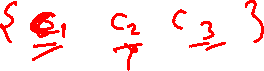 { C1 C2 C3 }